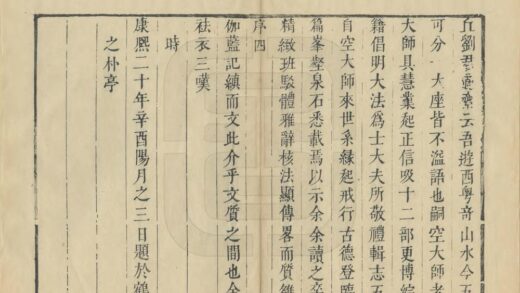 丘劉君彝云吾遊西粤竒山水今五
可分 大座皆不溢語也嗣空大師者
大師具慧業起正信啖十二部更博綜
籍倡明大法為士大夫所敬禮輯志五
自空大師來世系緣起戒行古德登臨
篇峯壑泉石悉載焉以示余余讀之卒
精緻班駮體雅辭核法顯傳畧而質雒
序四
伽藍記縝而文此介乎文質之間也余
祛衣三嘆
時
康熙二十年辛酉陽月之三日題於鶴
之朴亭